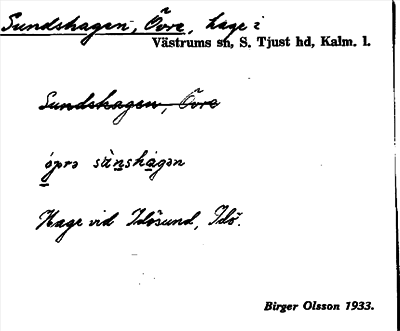 Sundshagen, Övre, hage i
Västrums sn, S. Tjust hd, Kalm. l.
Sundshagen, Övre
ópra sùnshàgən
Hage vid Idösund, Idö.
Birger Olsson 1933.